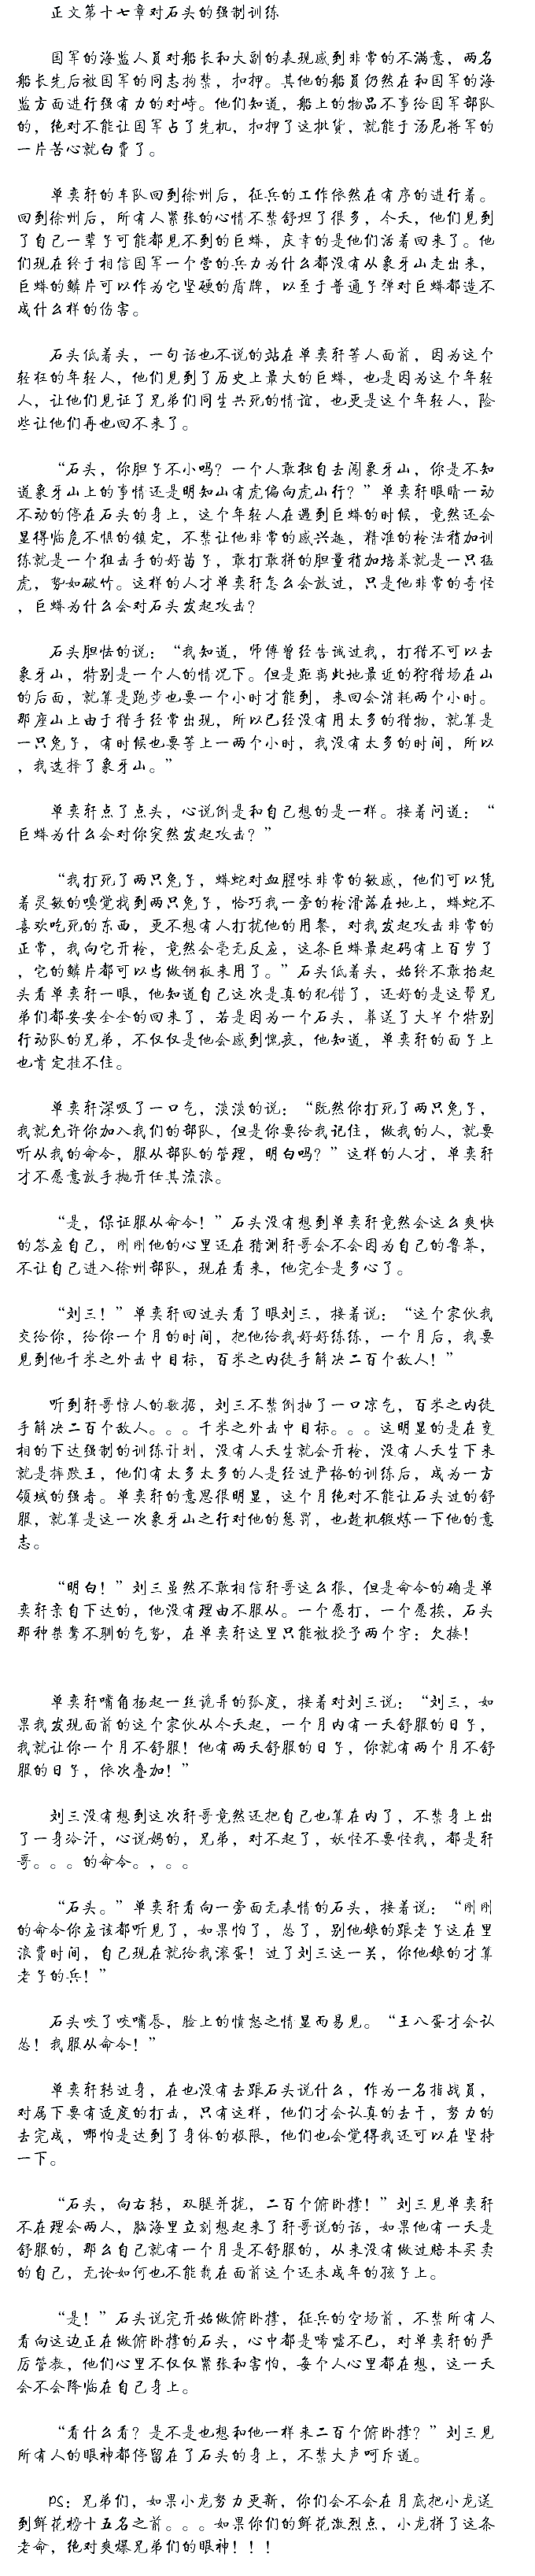 正文第十七章对石头的强制训练
国军的海监人员对船长和大副的表现感到非常的不满意，两名
船长先后被国军的同志拘禁，扣押。其他的船员仍然在和国军的海
监方面进行强有力的对峙。他们知道，船上的物品不事给国军部队
的，绝对不能让国军占了先机，扣押了这批货，就能于汤尼将军的
一片苦心就白费了。
单奕轩的车队回到徐州后，征兵的工作依然在有序的进行着。
回到徐州后，所有人紧张的心情不禁舒坦了很多，今天，他们见到
了自己一辈子可能都见不到的巨蟒，庆幸的是他们活着回来了。他
们现在终于相信国军一个营的兵力为什么都没有从象牙山走出来，
巨蟒的鳞片可以作为它坚硬的盾牌，以至于普通子弹对巨蟒都造不
成什么样的伤害。
石头低着头，一句话也不说的站在单奕轩等人面前，因为这个
轻狂的年轻人，他们见到了历史上最大的巨蟒，也是因为这个年轻
人，让他们见证了兄弟们同生共死的情谊，也更是这个年轻人，险
些让他们再也回不来了。
“石头，你胆子不小吗？一个人敢独自去闯象牙山，你是不知
道象牙山上的事情还是明知山有虎偏向虎山行？”单奕轩眼睛一动
不动的停在石头的身上，这个年轻人在遇到巨蟒的时候，竟然还会
显得临危不惧的镇定，不禁让他非常的感兴趣，精准的枪法稍加训
练就是一个狙击手的好苗子，敢打敢拼的胆量稍加培养就是一只猛
虎，势如破竹。这样的人才单奕轩怎么会放过，只是他非常的奇怪
，巨蟒为什么会对石头发起攻击？
石头胆怯的说：“我知道，师傅曾经告诫过我，打猎不可以去
象牙山，特别是一个人的情况下。但是距离此地最近的狩猎场在山
的后面，就算是跑步也要一个小时才能到，来回会消耗两个小时。
那座山上由于猎手经常出现，所以已经没有用太多的猎物，就算是
一只兔子，有时候也要等上一两个小时，我没有太多的时间，所以
，我选择了象牙山。”
单奕轩点了点头，心说倒是和自己想的是一样。接着问道：“
巨蟒为什么会对你突然发起攻击？”
“我打死了两只兔子，蟒蛇对血腥味非常的敏感，他们可以凭
着灵敏的嗅觉找到两只兔子，恰巧我一旁的枪滑落在地上，蟒蛇不
喜欢吃死的东西，更不想有人打扰他的用餐，对我发起攻击非常的
正常，我向它开枪，竟然会毫无反应，这条巨蟒最起码有上百岁了
，它的鳞片都可以当做钢板来用了。”石头低着头，始终不敢抬起
头看单奕轩一眼，他知道自己这次是真的犯错了，还好的是这帮兄
弟们都安安全全的回来了，若是因为一个石头，葬送了大半个特别
行动队的兄弟，不仅仅是他会感到愧疚，他知道，单奕轩的面子上
也肯定挂不住。
单奕轩深吸了一口气，淡淡的说：“既然你打死了两只兔子，
我就允许你加入我们的部队，但是你要给我记住，做我的人，就要
听从我的命令，服从部队的管理，明白吗？”这样的人才，单奕轩
才不愿意放手抛开任其流浪。
“是，保证服从命令！”石头没有想到单奕轩竟然会这么爽快
的答应自己，刚刚他的心里还在猜测轩哥会不会因为自己的鲁莽，
不让自己进入徐州部队，现在看来，他完全是多心了。
“刘三！”单奕轩回过头看了眼刘三，接着说：“这个家伙我
交给你，给你一个月的时间，把他给我好好练练，一个月后，我要
见到他千米之外击中目标，百米之内徒手解决二百个敌人！”
听到轩哥惊人的数据，刘三不禁倒抽了一口凉气，百米之内徒
手解决二百个敌人。。。千米之外击中目标。。。这明显的是在变
相的下达强制的训练计划，没有人天生就会开枪，没有人天生下来
就是摔跤王，他们有太多太多的人是经过严格的训练后，成为一方
领域的强者。单奕轩的意思很明显，这个月绝对不能让石头过的舒
服，就算是这一次象牙山之行对他的惩罚，也趁机锻炼一下他的意
志。
“明白！”刘三虽然不敢相信轩哥这么狠，但是命令的确是单
奕轩亲自下达的，他没有理由不服从。一个愿打，一个愿挨，石头
那种桀骜不驯的气势，在单奕轩这里只能被授予两个字：欠揍！
单奕轩嘴角扬起一丝诡异的弧度，接着对刘三说：“刘三，如
果我发现面前的这个家伙从今天起，一个月内有一天舒服的日子，
我就让你一个月不舒服！他有两天舒服的日子，你就有两个月不舒
服的日子，依次叠加！”
刘三没有想到这次轩哥竟然还把自己也算在内了，不禁身上出
了一身冷汗，心说妈的，兄弟，对不起了，妖怪不要怪我，都是轩
哥。。。的命令。，。。
“石头。”单奕轩看向一旁面无表情的石头，接着说：“刚刚
的命令你应该都听见了，如果怕了，怂了，别他娘的跟老子这在里
浪费时间，自己现在就给我滚蛋！过了刘三这一关，你他娘的才算
老子的兵！”
石头咬了咬嘴唇，脸上的愤怒之情显而易见。“王八蛋才会认
怂！我服从命令！”
单奕轩转过身，在也没有去跟石头说什么，作为一名指战员，
对属下要有适度的打击，只有这样，他们才会认真的去干，努力的
去完成，哪怕是达到了身体的极限，他们也会觉得我还可以在坚持
一下。
“石头，向右转，双腿并拢，二百个俯卧撑！”刘三见单奕轩
不在理会两人，脑海里立刻想起来了轩哥说的话，如果他有一天是
舒服的，那么自己就有一个月是不舒服的，从来没有做过赔本买卖
的自己，无论如何也不能栽在面前这个还未成年的孩子上。
“是！”石头说完开始做俯卧撑，征兵的空场前，不禁所有人
看向这边正在做俯卧撑的石头，心中都是唏嘘不已，对单奕轩的严
厉管教，他们心里不仅仅紧张和害怕，每个人心里都在想，这一天
会不会降临在自己身上。
“看什么看？是不是也想和他一样来二百个俯卧撑？”刘三见
所有人的眼神都停留在了石头的身上，不禁大声呵斥道。
PS：兄弟们，如果小龙努力更新，你们会不会在月底把小龙送
到鲜花榜十五名之前。。。如果你们的鲜花激烈点，小龙拼了这条
老命，绝对爽爆兄弟们的眼神！！！